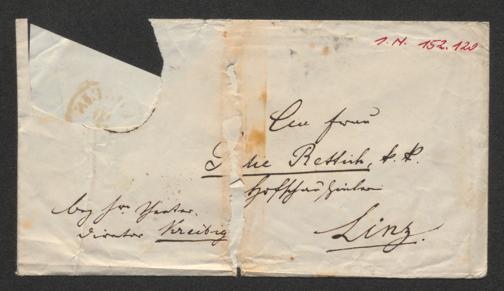 I.N. 152.120
An Frau
Julie Rettich, k. k.
Hofschauspielerin
bey Hrn Theater-
director Kreibig
Linz.